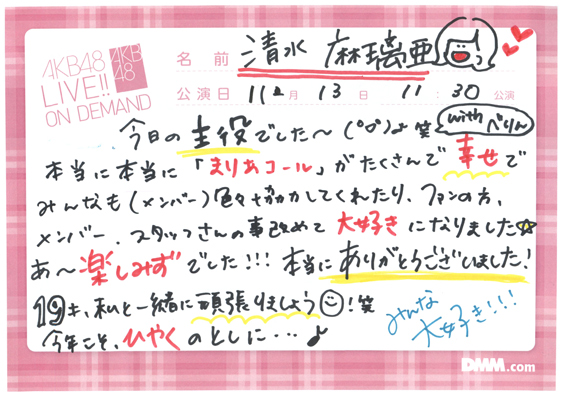 AKB48
LIVE!!
ON DEMAND
AKB
48
名前 清水 麻璃亜
公演日 11月 13日 11:30 公演
今日の主役でした〜(°▽°)♪笑 with ぺりん
本当に本当に「まりあコール」がたくさんで幸せで
みんなも(メンバー)色々協力してくれたり、ファンの方、
メンバー、スタッフさんの事改めて大好きになりました☆
あ〜楽しみずでした!!!本当にありがとうございました!
19才、私と一緒に頑張りましょう!笑
今年こそ、ひやくのとしに…♪
みんな
大好き!!!
DMM.com